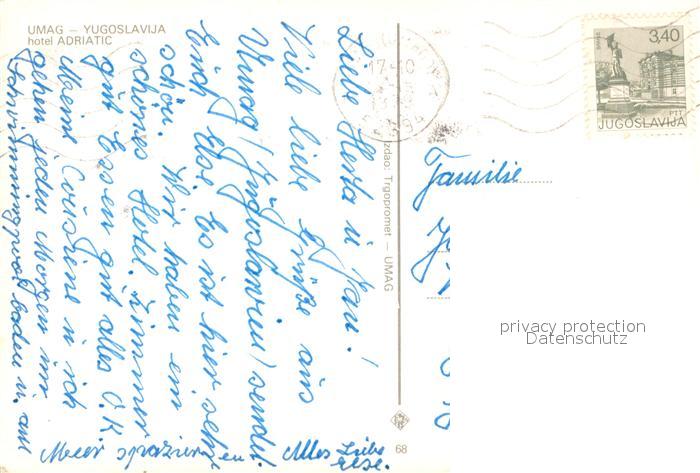 UMAG — YUGOSLAVIJA
hotel ADRIATIC
Liebe Herta u. Jan!
Viele liebe Grüße aus
Umag (Jugoslavien) sendet
Euch Else Es ist hier sehr
schön. Wir haben ein
schönes Hotel. Zimmer
gut Essen gut alles O.K.
Meine Cousine u ich
gehen jeden Morgen im
Schwimmingpool baden u. am
Meer spazieren Alles Liebe
Else.
Izdao: Trgopromet — UMAG
68
Familie
3,40
JUGOSLAVIJA
privacy protection
Datenschutz